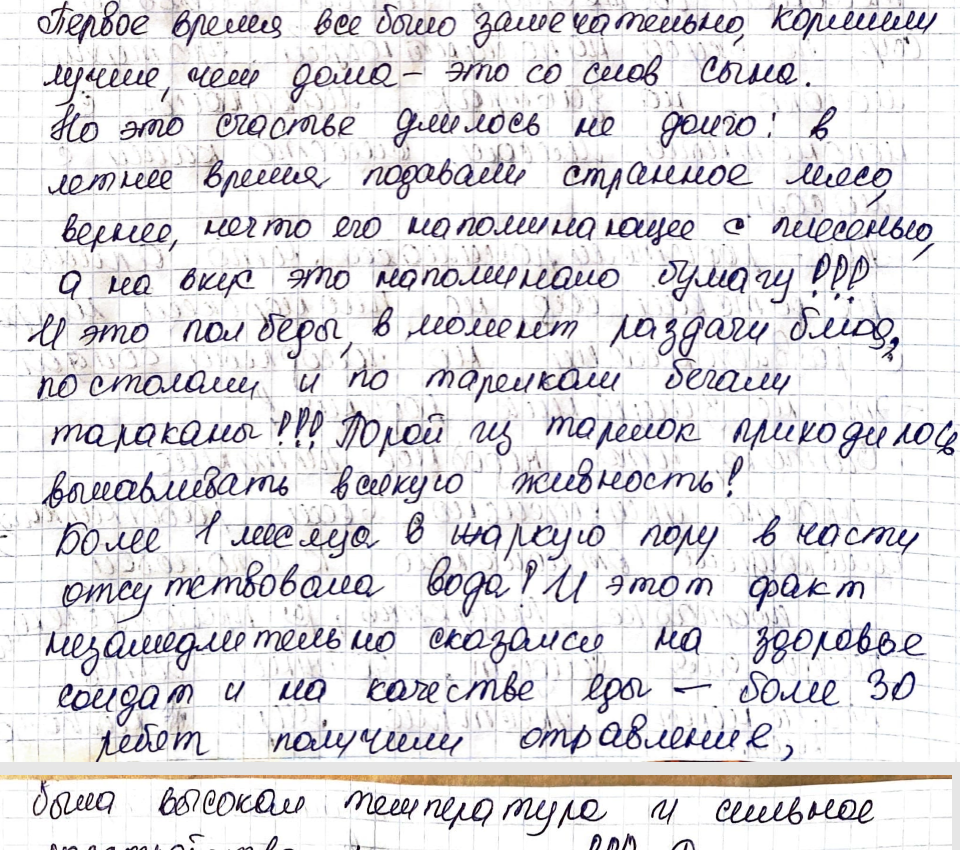 Первое время все было замечательно, кормили
лучше, чем дома – это со слов сына.
Но это счастье длилось не долго: в
летнее время подавали странное мясо,
вернее, нечто его напоминающее с плесенью,
а на вкус это напоминало бумагу!!!
И это пол беды, в момент раздачи блюд,
по столам и по тарелкам бегали
тараканы!!! Порой из тарелок приходилось
вылавливать всякую живность!
Более 1 месяца в жаркую пору в части
отсутствовала вода! И этот факт
незамедлительно сказался на здоровье
солдат и на качестве еды — более 30
ребят получили отравление,
была высокая температура и сильное